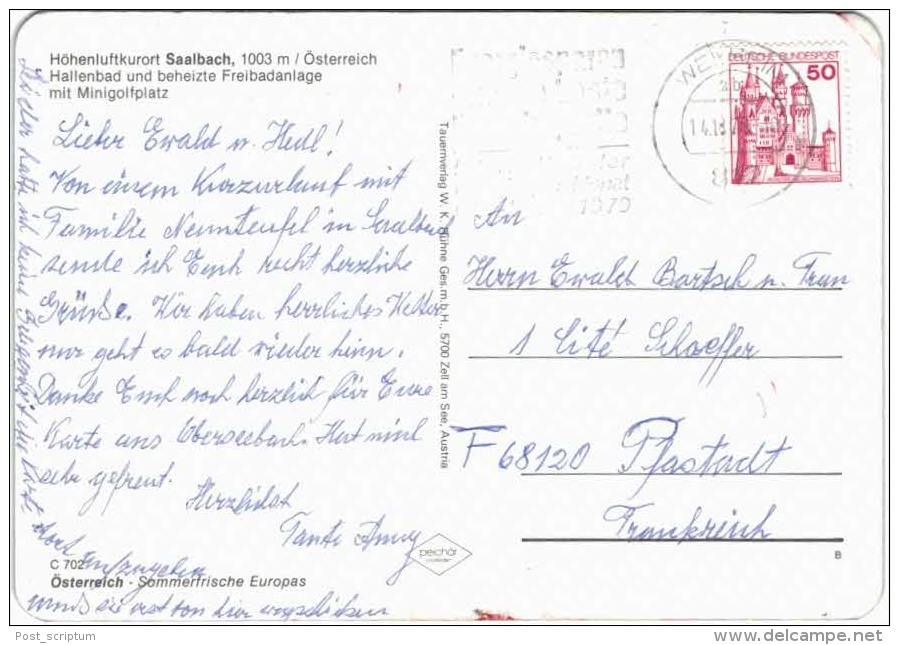 Höhenluftkurort Saalbach, 1003 m / Österreich
Hallenbad und beheizte Freibadanlage
mit Minigolfplatz
Lieber Ewald u. Hedl!
Von einem Kurzurlaub mit
Familie Neunteufel in Saalbach
sende ich Euch recht herzliche
Grüße. Wir haben herrliches Wetter
nur geht es bald wieder heim.
Danke Euch noch herzlich für Eure
Karte aus Oberseebach. Hat mich
sehr gefreut.
Herzlichst
Tante Anny
Leider hatte ich keine Gelegenheit die Karte
dort
aufzugeben
muß sie erst von hier wegschicken
C 702
Österreich - Sommerfrische Europas
Tauernverlag W. K. Bühne Ges.m.b.H., 5700 Zell am See, Austria
peichär
1979
DEUTSCHE BUNDESPOST
50
An
Herrn Ewald Bartsch u. Frau
1 Cité Schoeffer
F 68120 Pfastadt
Frankreich
B
Post_scriptum
www.delcampe.net